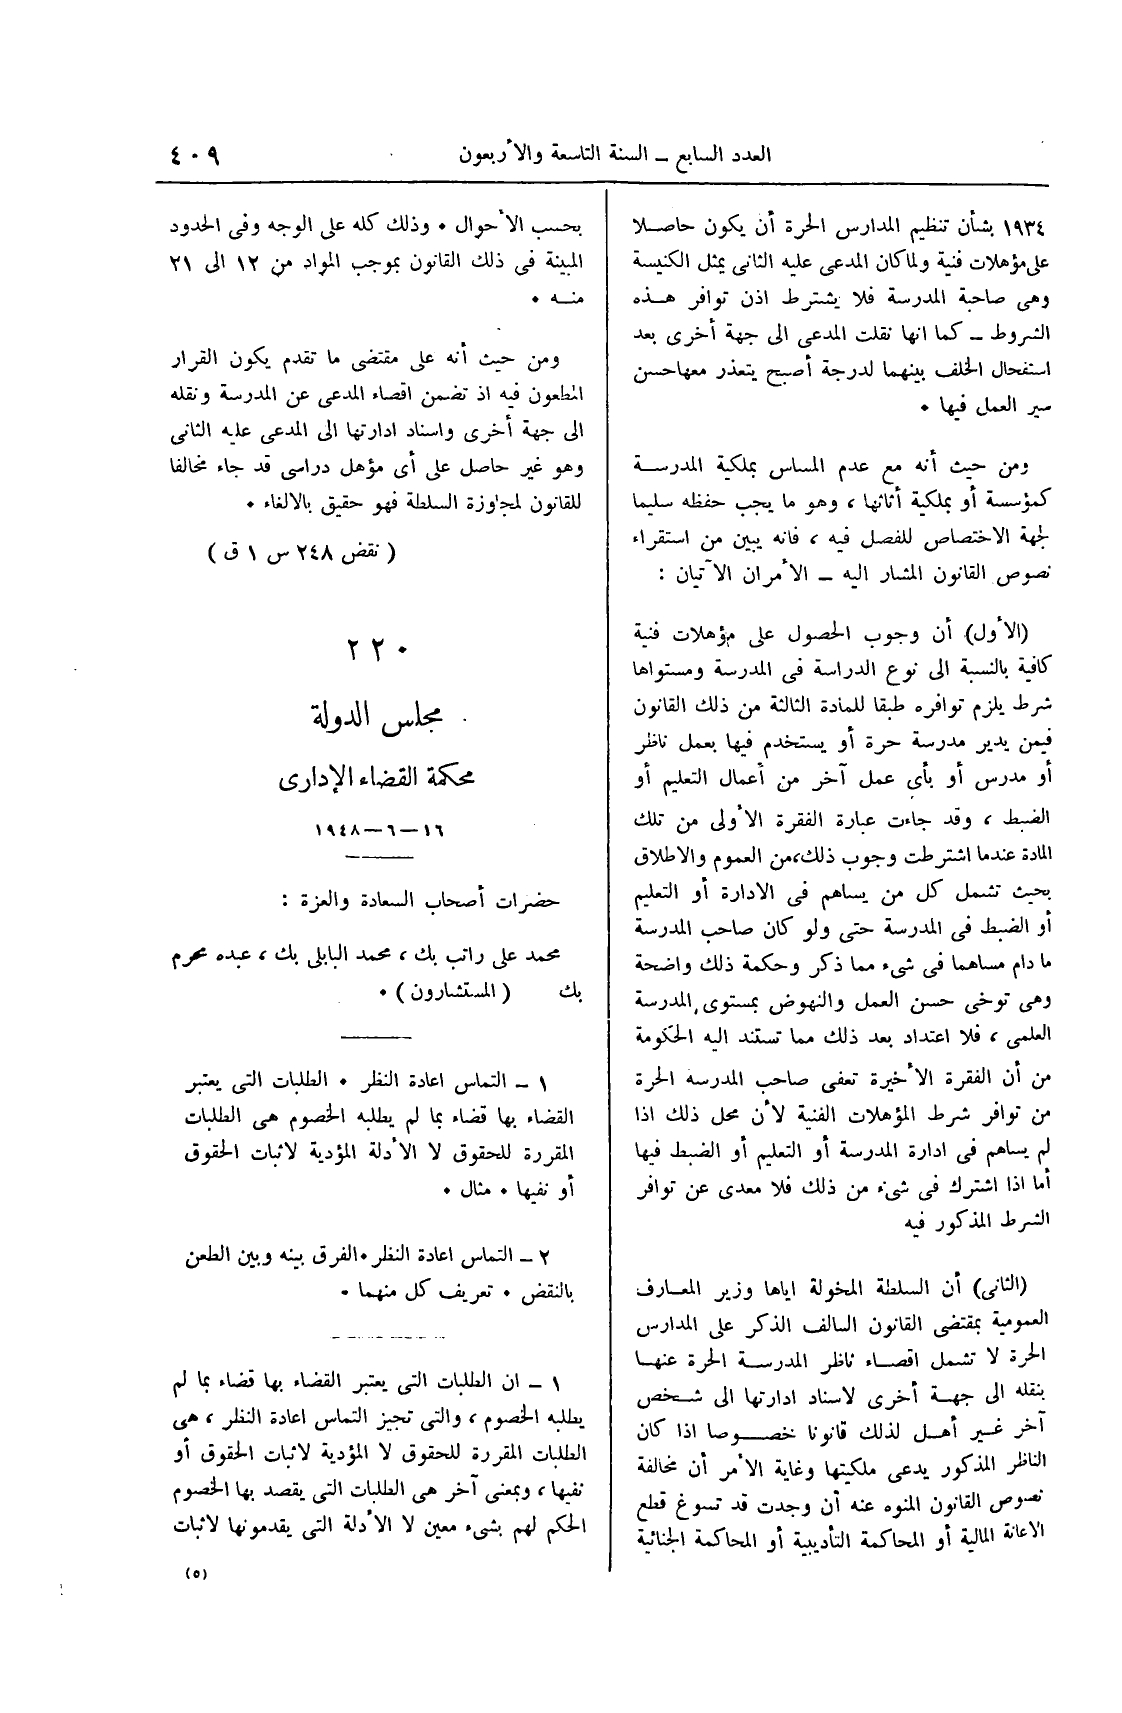 العدد السابع ــ السنة التاسعة والأربعون ٤٠٩
١٩٣٤ بشأن تنظيم المدارس الحرة أن يكون حاصلا
على مؤهلات فنية ولما كان المدعى عليه الثانى يمثل الكنيسة
وهى صاحبة المدرسة فلا يشترط اذن توافر هذه
الشروط ــ كما انها نقلت المدعى الى جهة أخرى بعد
استفحال الخلف بينهما لدرجة أصبح يتعذر معها حسن
سير العمل فيها •
ومن حيث أنه مع عدم المساس بملكية المدرسة
كمؤسسة أو بملكية أثاثها ، وهو ما يجب حفظه سليما
لجهة الاختصاص للفصل فيه ، فانه يبين من استقراء
نصوص القانون المشار اليه ــ الأمران الآتيان :
(الأول) أن وجوب الحصول على مؤهلات فنية
كافية بالنسبة الى نوع الدراسة فى المدرسة ومستواها
شرط يلزم توافره طبقا للمادة الثالثة من ذلك القانون
فيمن يدير مدرسة حرة أو يستخدم فيها بعمل ناظر
أو مدرس أو بأى عمل آخر من أعمال التعليم أو
الضبط ، وقد جاءت عبارة الفقرة الأولى من تلك
المادة عندما اشترطت وجوب ذلك،من العموم والاطلاق
بحيث تشمل كل من يساهم فى الادارة أو التعليم
أو الضبط فى المدرسة حتى ولو كان صاحب المدرسة
ما دام مساهما فى شىء مما ذكر وحكمة ذلك واضحة
وهى توخى حسن العمل والنهوض بمستوى المدرسة
العلمى ، فلا اعتداد بعد ذلك مما تستند اليه الحكومة
من أن الفقرة الأخيرة تعفى صاحب المدرسه الحرة
من توافر شرط المؤهلات الفنية لأن محل ذلك اذا
لم يساهم فى ادارة المدرسة أو التعليم أو الضبط فيها
أما اذا اشترك فى شىء من ذلك فلا معدى عن توافر
الشرط المذكور فيه
(الثانى) أن السلطة المخولة اياها وزير المعارف
العمومية بمقتضى القانون السالف الذكر على المدارس
الحرة لا تشمل اقصاء ناظر المدرسة الحرة عنها
بنقله الى جهة أخرى لاسناد ادارتها الى شخص
آخر غير أهل لذلك قانونا خصوصا اذا كان
الناظر المذكور يدعى ملكيتها وغاية الأمر أن مخالفة
نصوص القانون المنوه عنه أن وجدت قد تسوغ قطع
الاعانة المالية أو المحاكمة التأديبية أو المحاكمة الجنائية
بحسب الأحوال • وذلك كله على الوجه وفى الحدود
المبينة فى ذلك القانون بموجب المواد من ١٢ الى ٢١
منه •
ومن حيث أنه على مقتضى ما تقدم يكون القرار
المطعون فيه اذ تضمن اقصاء المدعى عن المدرسة ونقله
الى جهة أخرى واسناد ادارتها الى المدعى عليه الثانى
وهو غير حاصل على أى مؤهل دراسى قد جاء مخالفا
للقانون لمجاوزة السلطة فهو حقيق بالالغاء •
( نقض ٢٤٨ س ١ ق )
٢٢٠
مجلس الدولة
محكمة القضاء الإدارى
١٦–٦–١٩٤٨
حضرات أصحاب السعادة والعزة :
محمد على راتب بك ، محمد البابلى بك ، عبده محرم
بك ( المستشارون ) •
١ ــ التماس اعادة النظر • الطلبات التى يعتبر
القضاء بها قضاء بما لم يطلبه الخصوم هى الطلبات
المقررة للحقوق لا الأدلة المؤدية لاثبات الحقوق
أو نفيها • مثال •
٢ ــ التماس اعادة النظر •الفرق بينه وبين الطعن
بالنقض • تعريف كل منهما •
١ ــ ان الطلبات التى يعتبر القضاء بها قضاء بما لم
يطلبه الخصوم ، والتى تجيز التماس اعادة النظر ، هى
الطلبات المقررة للحقوق لا المؤدية لاثبات الحقوق أو
نفيها ، وبمعنى آخر هى الطلبات التى يقصد بها الخصوم
الحكم لهم بشىء معين لا الأدلة التى يقدمونها لاثبات
(٥)